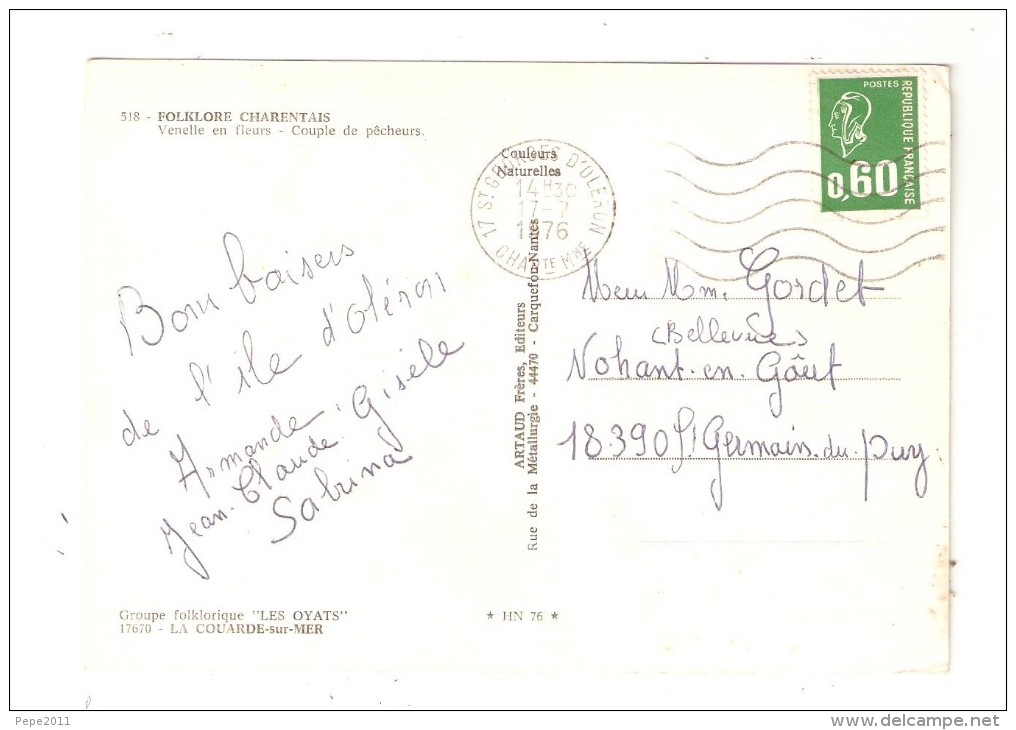 518 - FOLKLORE CHARENTAIS
Venelle en fleurs - Couple de pêcheurs.
POSTES
REPUBLIQUE FRANÇAISE
0,60
Couleurs
Naturelles
17 ST GEORGES D'OLERON
14H30
17-7
1976
CHARTE MME
Bons baisers
de l'île d'oléron
Armande. Gisèle
Jean-Claude
Sabrina
ARTAUD Frères, Editeurs
Rue de la Métallurgie - 44470 - Carquefou-Nantes
Mm. Gordet
(Bellevue)
Nohant-en-Gôut
18390 St Germain.du.Puy.
Groupe folklorique "LES OYATS"
17670 - LA COUARDE-sur-MER
* HN 76 *
Pepe2011
www.delcampe.net